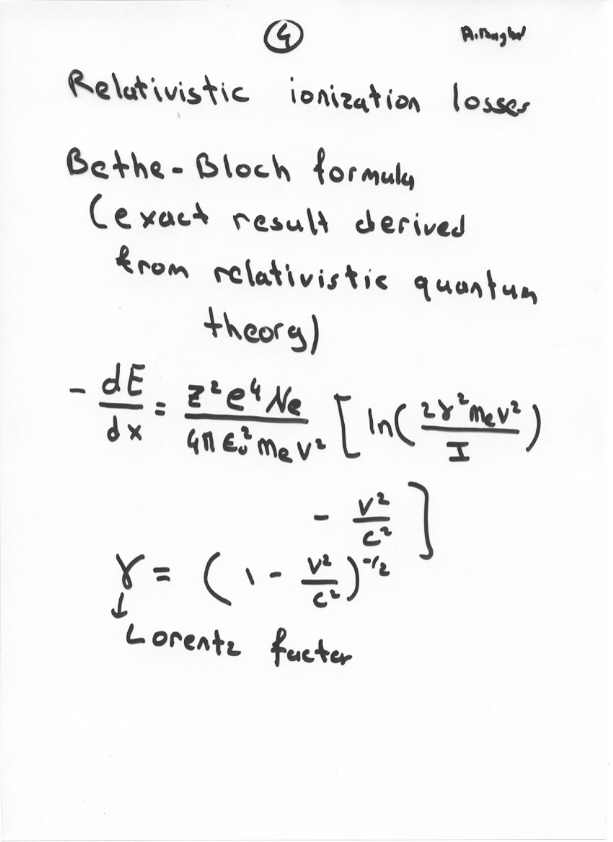 ④
Relativistic ionization losses
Bethe-Bloch formula
(exact result derived
from relativistic quantum
theory)
- dE/dx = z²e⁴Ne/4πε₀²mev² [ ln( 2γ²mev²/I )
- v²/c² ]
γ = (1 - v²/c²)^-1/2
↓
Lorentz factor